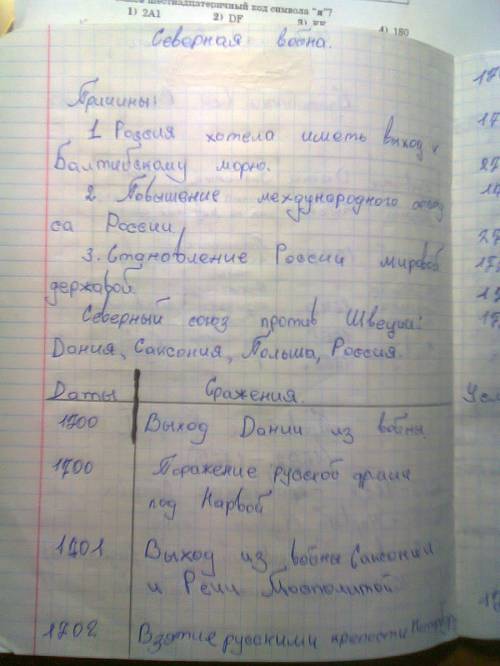 шестнадцатеричный код символа "я"?
1) 2A1 2) DF 4) 180
Северная война.
Причины:
1 Россия хотела иметь выход к
Балтийскому морю.
2. Повышение международного
са России
3. Становление России мировой
державой.
Северный союз против Швеции:
Дания, Саксония, Польша, Россия.
Даты Сражения.
1700 Выход Дании из войны.
1700 Поражение русской
под Нарвой
1701 Выход из войны Саксонии
и Речи Посполитой.
1702 Взятие русскими крепости